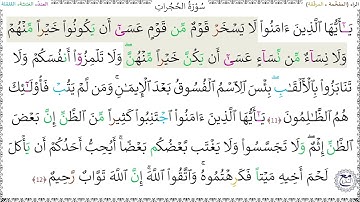 سُورَةُ الحُجُرَاتِ
يَـٰٓأَيُّهَا ٱلَّذِينَ ءَامَنُوا۟ لَا يَسْخَرْ قَوْمٌ مِّن قَوْمٍ عَسَىٰٓ أَن يَكُونُوا۟ خَيْرًا مِّنْهُمْ
وَلَا نِسَآءٌ مِّن نِّسَآءٍ عَسَىٰٓ أَن يَكُنَّ خَيْرًا مِّنْهُنَّ ۖ وَلَا تَلْمِزُوٓا۟ أَنفُسَكُمْ وَلَا
تَنَابَزُوا۟ بِٱلْأَلْقَـٰبِ ۖ بِئْسَ ٱلِٱسْمُ ٱلْفُسُوقُ بَعْدَ ٱلْإِيمَـٰنِ ۚ وَمَن لَّمْ يَتُبْ فَأُو۟لَـٰٓئِكَ
هُمُ ٱلظَّـٰلِمُونَ ﴿11﴾ يَـٰٓأَيُّهَا ٱلَّذِينَ ءَامَنُوا۟ ٱجْتَنِبُوا۟ كَثِيرًا مِّنَ ٱلظَّنِّ إِنَّ بَعْضَ
ٱلظَّنِّ إِثْمٌ ۖ وَلَا تَجَسَّسُوا۟ وَلَا يَغْتَب بَّعْضُكُم بَعْضًا ۚ أَيُحِبُّ أَحَدُكُمْ أَن يَأْكُلَ
لَحْمَ أَخِيهِ مَيْتًا فَكَرِهْتُمُوهُ ۚ وَٱتَّقُوا۟ ٱللَّهَ ۚ إِنَّ ٱللَّهَ تَوَّابٌ رَّحِيمٌ ﴿12﴾